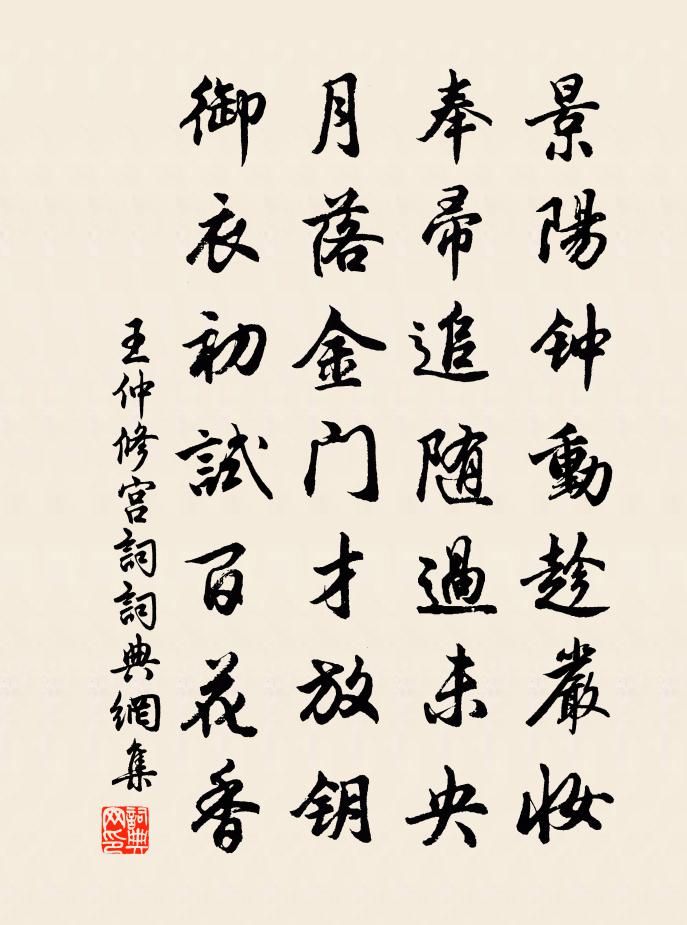 景陽钟動趁嚴妝
奉帚追随過未央
月落金门才放钥
御衣初試百花香
王仲修宫詞詞典網集
詞典网印